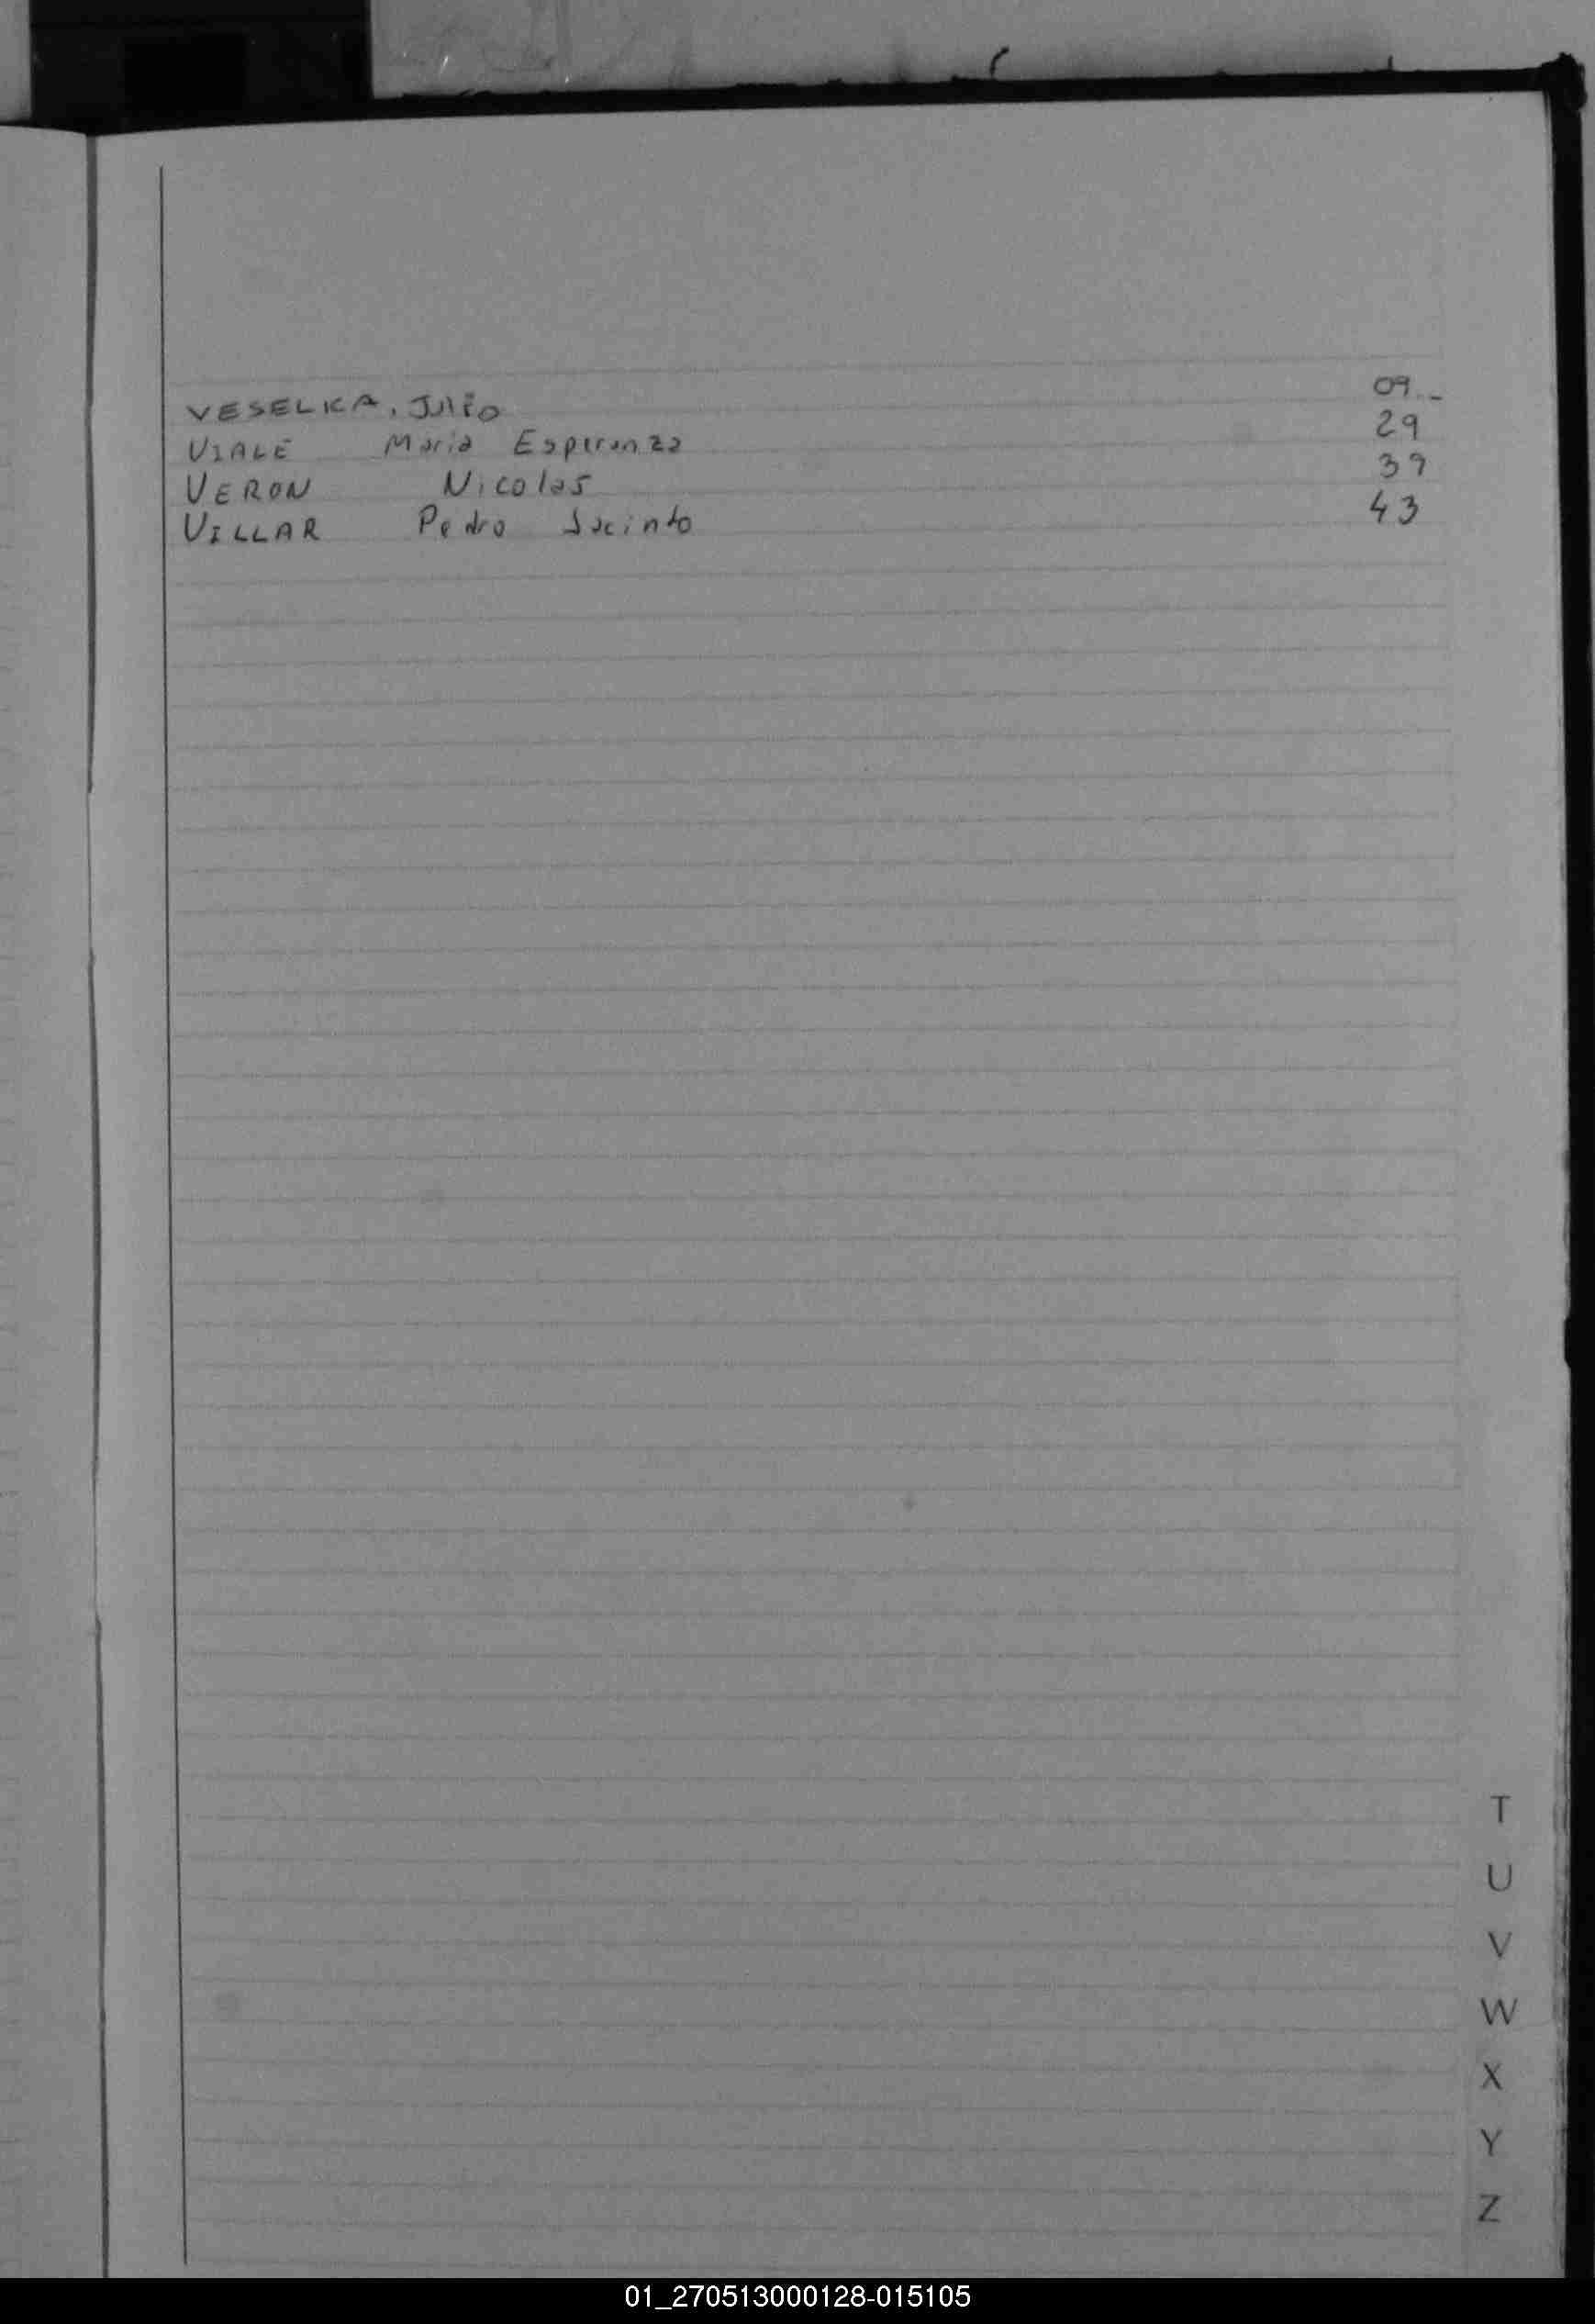 VESELKA, Julio 09._
VIALE Maria Esperanza 29
VERON Nicolas 39
VILLAR Pedro Jacinto 43
T
U
V
W
X
Y
Z
01_270513000128-015105